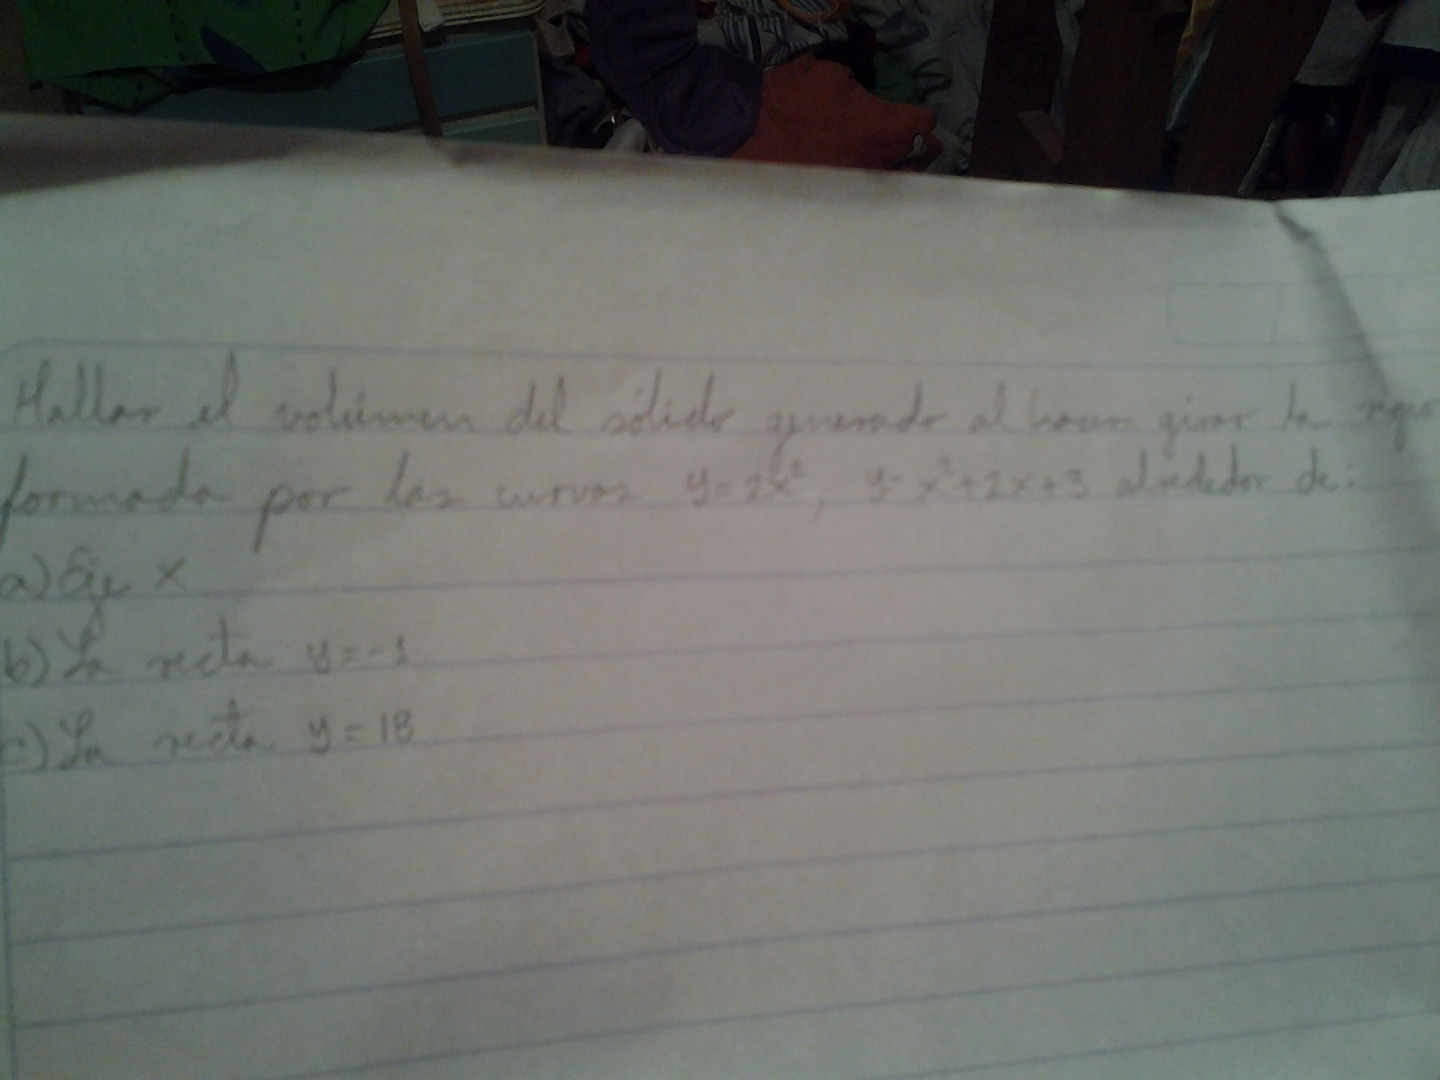 Hallar el volúmen del sólido generado al hacer girar la
formada por las curvas y=2x², y=x²+2x+3 alrededor de:
a) Eje x
b) La recta y=-1
c) La recta y=18